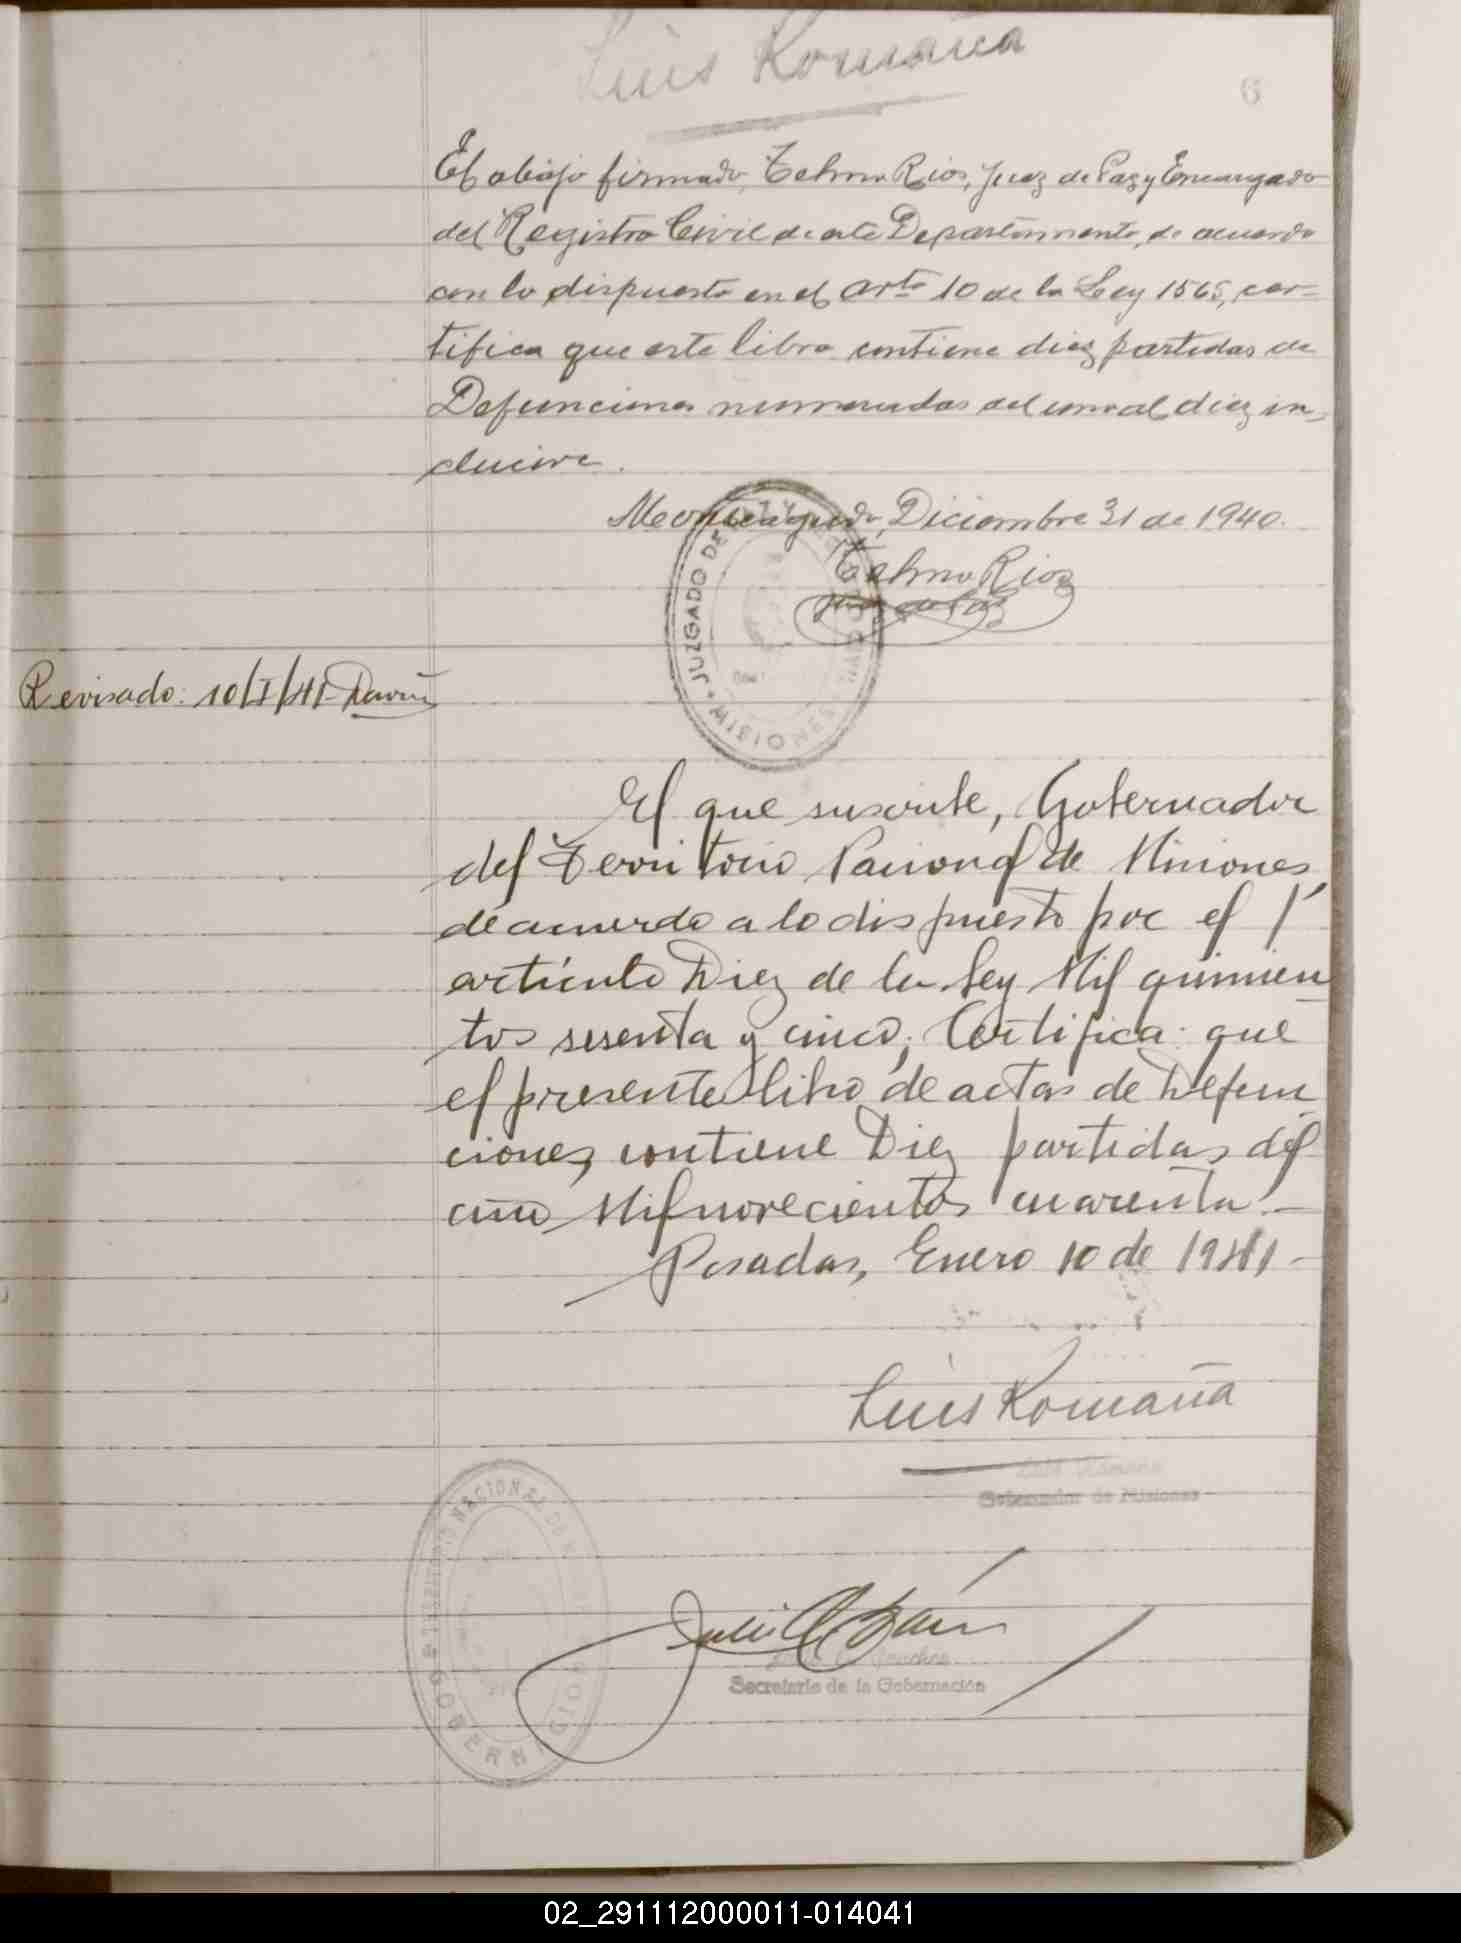 Luis Romaña
6
El abajo firmado, Telmo Rios, Juez de Paz y Encargado
del Registro Civil de este Departamento, de acuerdo
con lo dispuesto en el arto 10 de la Ley 1565, cer=
tifica que este libro contiene diez partidas de
Defunciones numeradas del uno al diez in-
clusive.
Monteagudo, Diciembre 31 de 1940.
Telmo Rios
Juez de Paz
JUZGADO DE
MISIONES
Revisado: 10/I/41-
El que suscribe, Gobernador
del Territorio Nacional de Misiones
de acuerdo a lo dispuesto por el
artículo Diez de la Ley Mil quinien
tos sesenta y cinco, Certifica: que
el presente libro de actas de Defun
ciones, contiene Diez partidas del
año Mil novecientos cuarenta.-
Posadas, Enero 10 de 1941-
Luis Romaña
Luis Romaña
Gobernador de Misiones
TERRITORIO NACIONAL DE
GOBERNACION
Secretario de la Gobernación
02_291112000011-014041